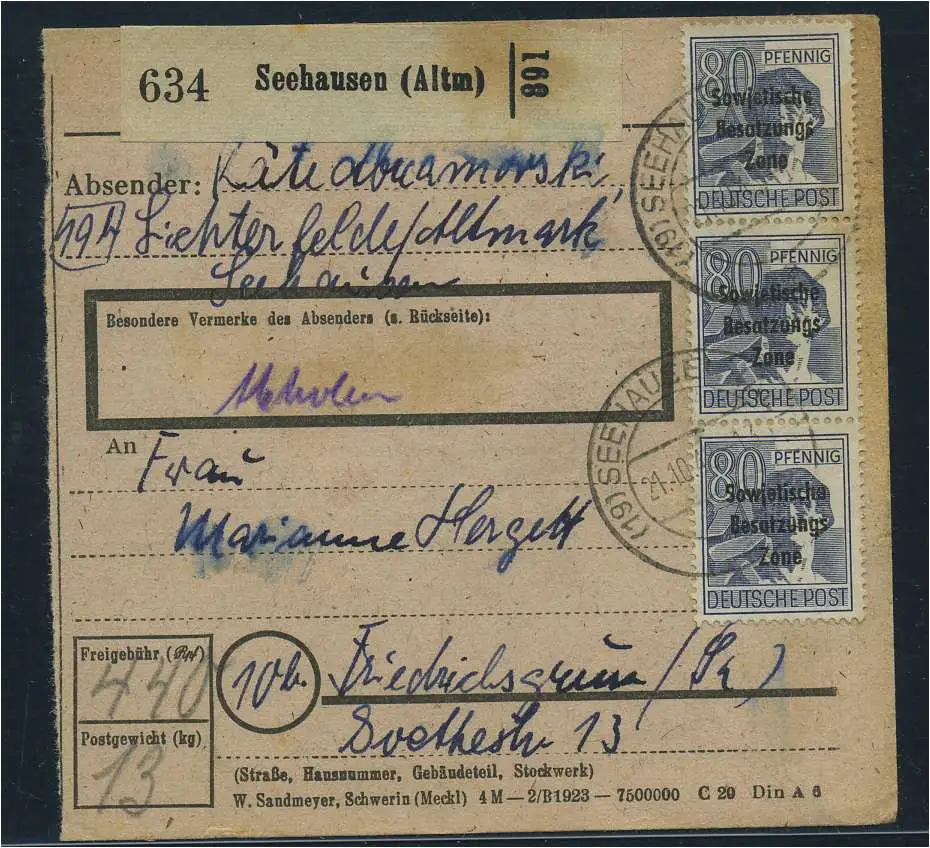 634 Seehausen (Altm) 168
Absender: Käte
19A Lichterfelde/Altmark
Seehausen
Besondere Vermerke des Absenders (s. Rückseite):
An Frau
Marianne Hergett
Freigebühr (Rpf)
440
10b. Friedrichsgrün / (Sa)
Postgewicht (kg)
13
Goethestr 13
(Straße, Hausnummer, Gebäudeteil, Stockwerk)
W. Sandmeyer, Schwerin (Meckl) 4 M — 2/B1923 — 7500000 C 29 Din A 6
80 PFENNIG
Sowjetische
Besatzungs
Zone
DEUTSCHE POST
80 PFENNIG
Sowjetische
Besatzungs
Zone
DEUTSCHE POST
80 PFENNIG
Sowjetische
Besatzungs
Zone
DEUTSCHE POST
(19) SEEHAU
(19) SEEHAUSE
21.10